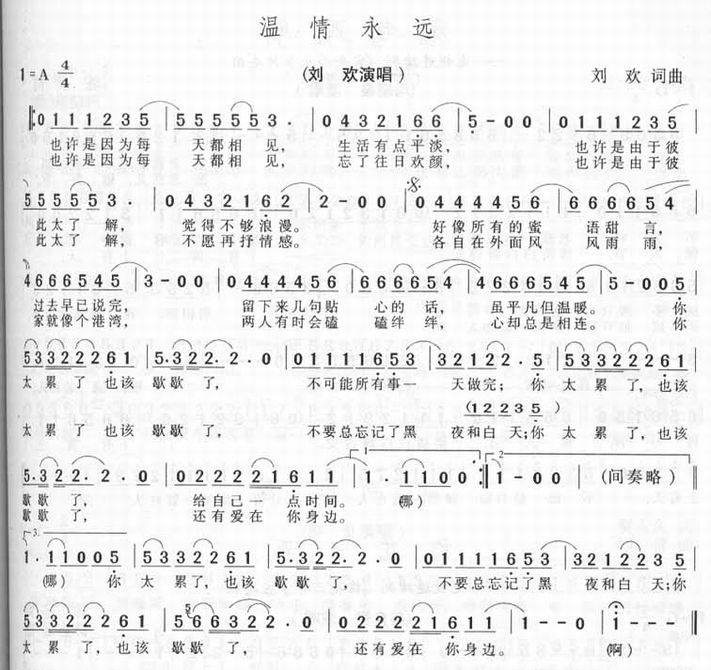 温情永远
1=A 4/4 (刘 欢演唱) 刘 欢 词曲
0 1 1 1 2 3 5 | 5 5 5 5 5 3. | 0 4 3 2 1 6 6 | 5 - 0 0 | 0 1 1 1 2 3 5 |
也许是因为每 天都相 见, 生活有点平淡, 也许是由于彼
也许是因为每 天都相 见, 忘了往日欢颜, 也许是由于彼
5 5 5 5 5 3. | 0 4 3 2 1 6 2 | 2 - 0 0 | 0 4 4 4 4 5 6 | 6 6 6 5 4 |
此太了 解, 觉得不够浪漫。 好像所有的蜜 语甜 言,
此太了 解, 不愿再抒情感。 各自在外面风 风雨 雨,
4 6 6 6 5 4 5 | 3 - 0 0 | 0 4 4 4 4 5 6 | 6 6 6 5 4 | 4 6 6 6 5 4 5 | 5 - 0 0 5 |
过去早已说完, 留下来几句贴 心的 话, 虽平凡但温暖。 你
家就像个港湾, 两人有时会磕 磕绊 绊, 心却总是相连。 你
5 3 3 2 2 2 6 1 | 5. 3 2 2. 2. 0 | 0 1 1 1 1 6 5 3 | 3 2 1 2 2. 0 5 | 5 3 3 2 2 2 6 1 |
太 累 了 也该 歇歇 了, 不可能所有事一 天做完; 你 太 累 了, 也该
(1 2 2 3 5)
太 累 了 也该 歇歇 了, 不要总忘记了黑 夜和白 天;你 太 累 了, 也该
5. 3 2 2. 2. 0 | 0 2 2 2 2 1 6 1 1 | 1. 1 1 0 0 :| 1 - 0 0 | (间奏略) |
歇歇 了, 给自己一 点时间。 (哪)
歇歇 了, 还有爱在 你身边。
1. 1 1 0 0 5 | 5 3 3 2 2 2 6 1 | 5. 3 2 2. 2. 0 | 0 1 1 1 1 6 5 3 | 3 2 1 2 2 3 5 |
(哪) 你 太 累了, 也该 歇歇 了, 不要总忘记了黑 夜和白 天;你
5 3 3 2 2 2 6 1 | 5 6 6 3 2 2. 2. 0 | 0 2 2 2 2 1 6 1 1 | 1 - 0 0 | 1 - - - |
太 累 了, 也该 歇歇 了, 还有爱在 你身边。 (啊)